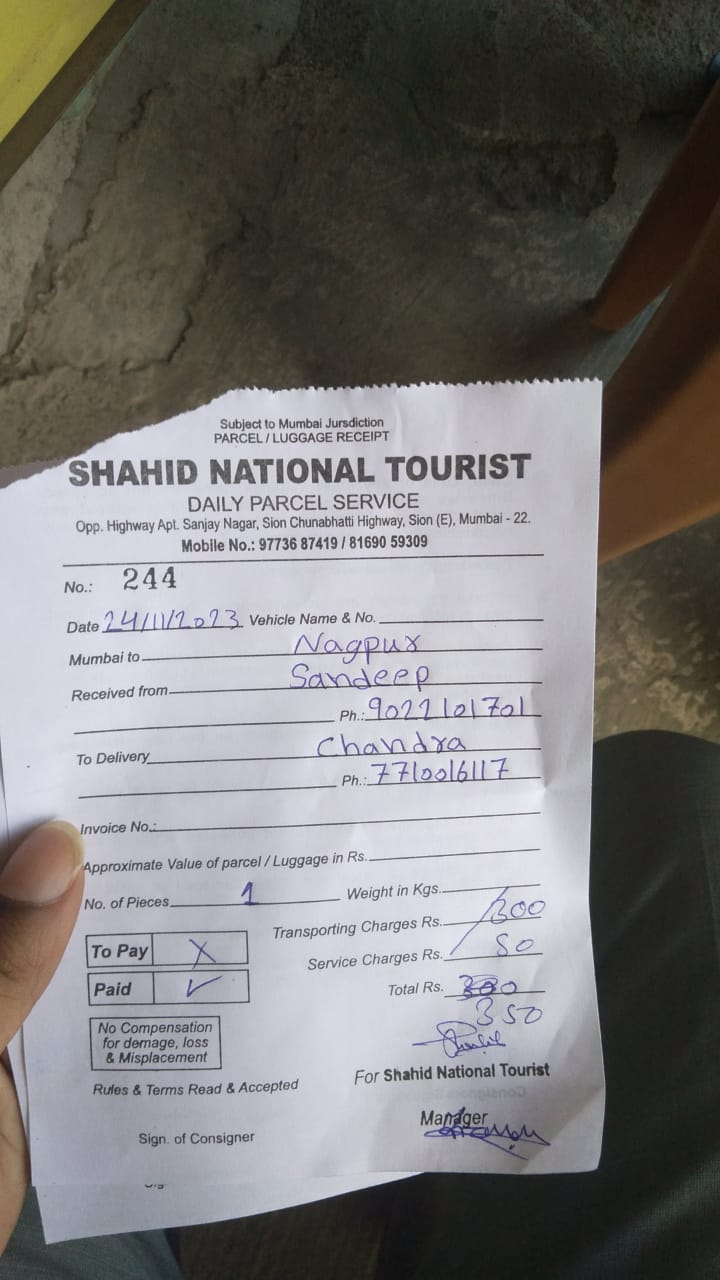 Subject to Mumbai Jursdiction
PARCEL / LUGGAGE RECEIPT
SHAHID NATIONAL TOURIST
DAILY PARCEL SERVICE
Opp. Highway Apt. Sanjay Nagar, Sion Chunabhatti Highway, Sion (E), Mumbai - 22.
Mobile No.: 97736 87419 / 81690 59309
No.: 244
Date 24/11/2023 Vehicle Name & No.
Mumbai to Nagpur
Received from Sandeep
Ph.: 9022101701
To Delivery Chandra
Ph.: 7710016117
Invoice No.:
Approximate Value of parcel / Luggage in Rs.
No. of Pieces 1 Weight in Kgs.
Transporting Charges Rs. 300
To Pay X
Service Charges Rs. 50
Paid ✓
Total Rs.
350
No Compensation
for demage, loss
& Misplacement
For Shahid National Tourist
Rufes & Terms Read & Accepted
Manager
Sign. of Consigner